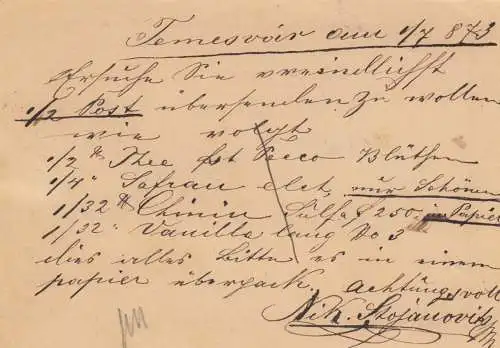 Temesvár am 1/7 873
Ersuche Sie vreindlichst
1/2 Post übersenden zu wollen
wie volgt
1/2 ℔ Thee fst Pecco Blüthen
1/4 " Safran elct, nur Schönen
1/32 ℔ Chinin Sulfa 250 in Papier
1/32 " Vanilla lang No 3
dies alles Bitte es in einem
papier überpack. Achtungsvoll
Nik. Stojanovits